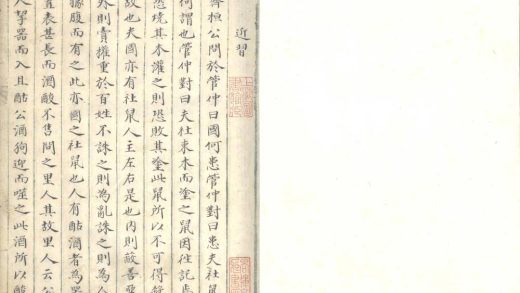 近習
齊桓公問於管仲曰國何患管仲對曰患夫社鼠
何謂也管仲對曰夫社束木而塗之鼠因往託焉
恐燒其木灌之則恐敗其塗此鼠所以不可得
故也夫國亦有社鼠人主左右是也内則蔽善惡
外則賣權重於百姓不誅之則為亂誅之則為人
據腹而有之此亦國之社鼠也人有酤酒者為器
置表甚長而酒酸不售問之里人其故里人云公
人挈器而入且酤公酒狗迎而噬之此酒所以酸